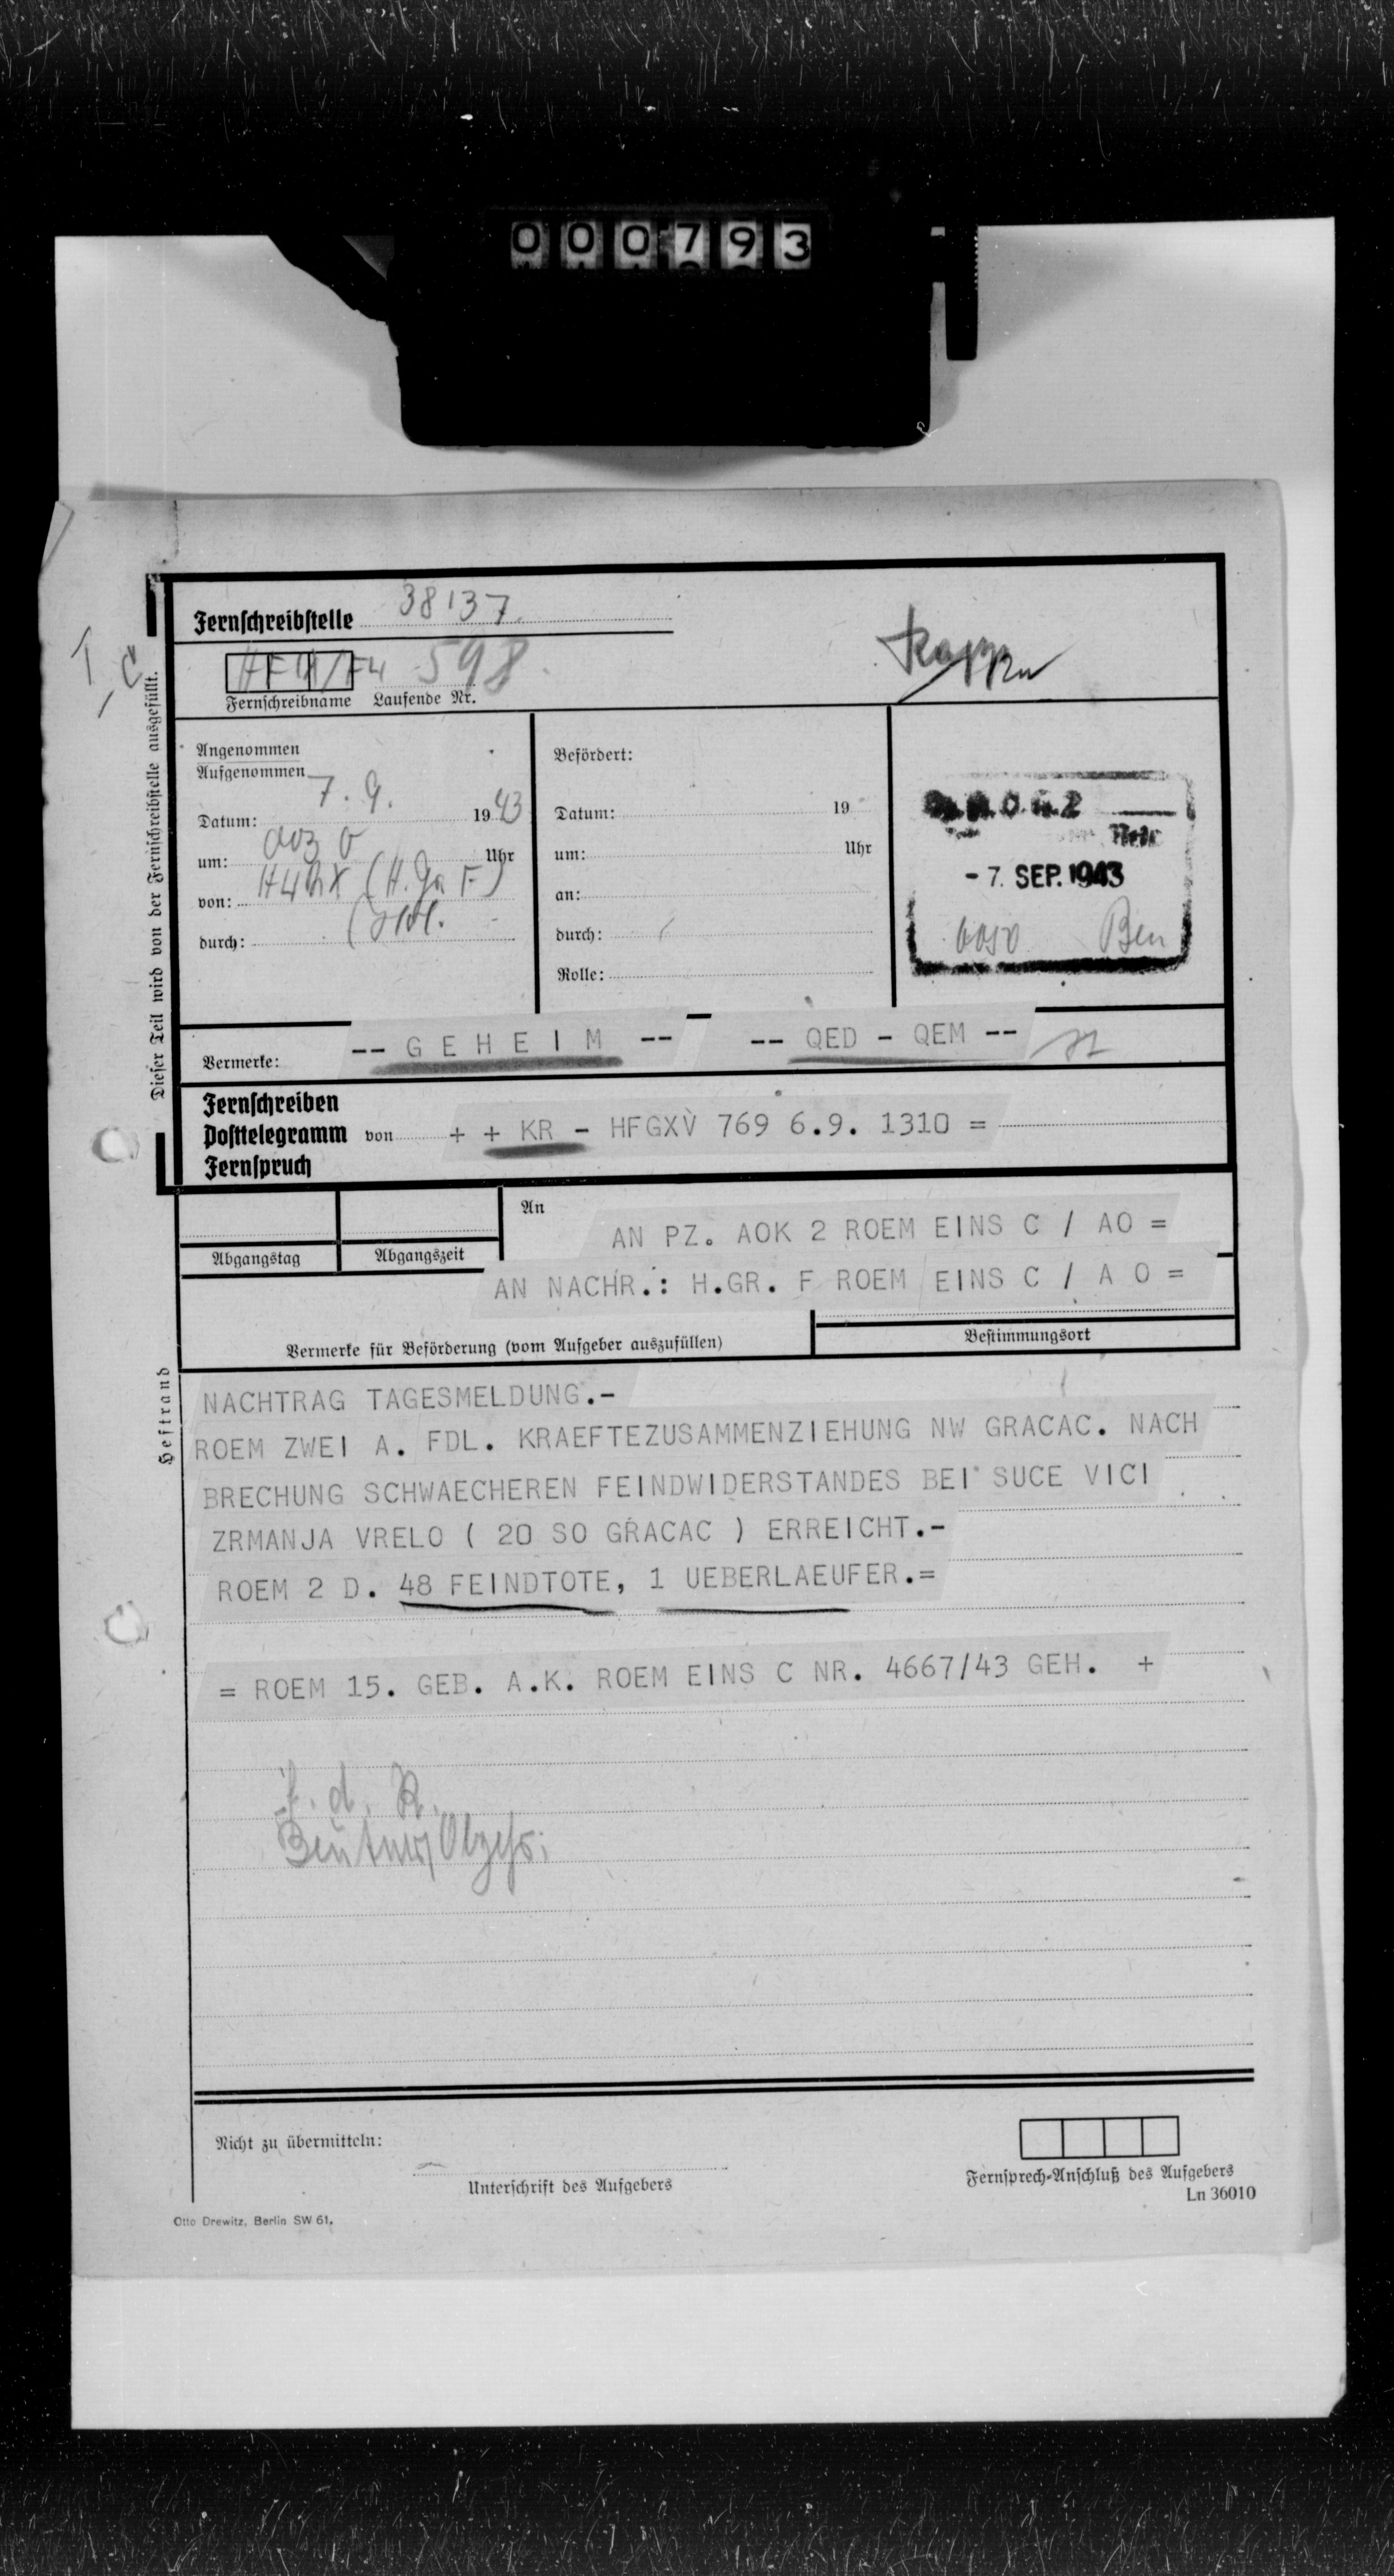 000793
Fernschreibstelle 38137.
598
Fernschreibname Laufende Nr.
Dieser Teil wird von der Fernschreibstelle ausgefüllt.
Angenommen
Aufgenommen
Datum: 7. 9. 1943
um: Uhr
von:
durch:
Befördert:
Datum: 19
um: Uhr
an:
durch:
Rolle:
- 7. SEP. 1943
Ben
Vermerke: -- G E H E I M -- -- QED - QEM --
Fernschreiben
Posttelegramm von + + KR - HFGXV 769 6.9. 1310 =
Fernspruch
Abgangstag
Abgangszeit
An
AN PZ. AOK 2 ROEM EINS C / AO =
AN NACHR.: H.GR. F ROEM EINS C / A O =
Vermerke für Beförderung (vom Aufgeber auszufüllen)
Bestimmungsort
Heftrand
NACHTRAG TAGESMELDUNG.-
ROEM ZWEI A. FDL. KRAEFTEZUSAMMENZIEHUNG NW GRACAC. NACH
BRECHUNG SCHWAECHEREN FEINDWIDERSTANDES BEI SUCE VICI
ZRMANJA VRELO ( 20 SO GRACAC ) ERREICHT.-
ROEM 2 D. 48 FEINDTOTE, 1 UEBERLAEUFER.=
= ROEM 15. GEB. A.K. ROEM EINS C NR. 4667/43 GEH. +
f. d. R.
Nicht zu übermitteln:
Unterschrift des Aufgebers
Fernsprech-Anschluß des Aufgebers
Ln 36010
Otto Drewitz, Berlin SW 61.